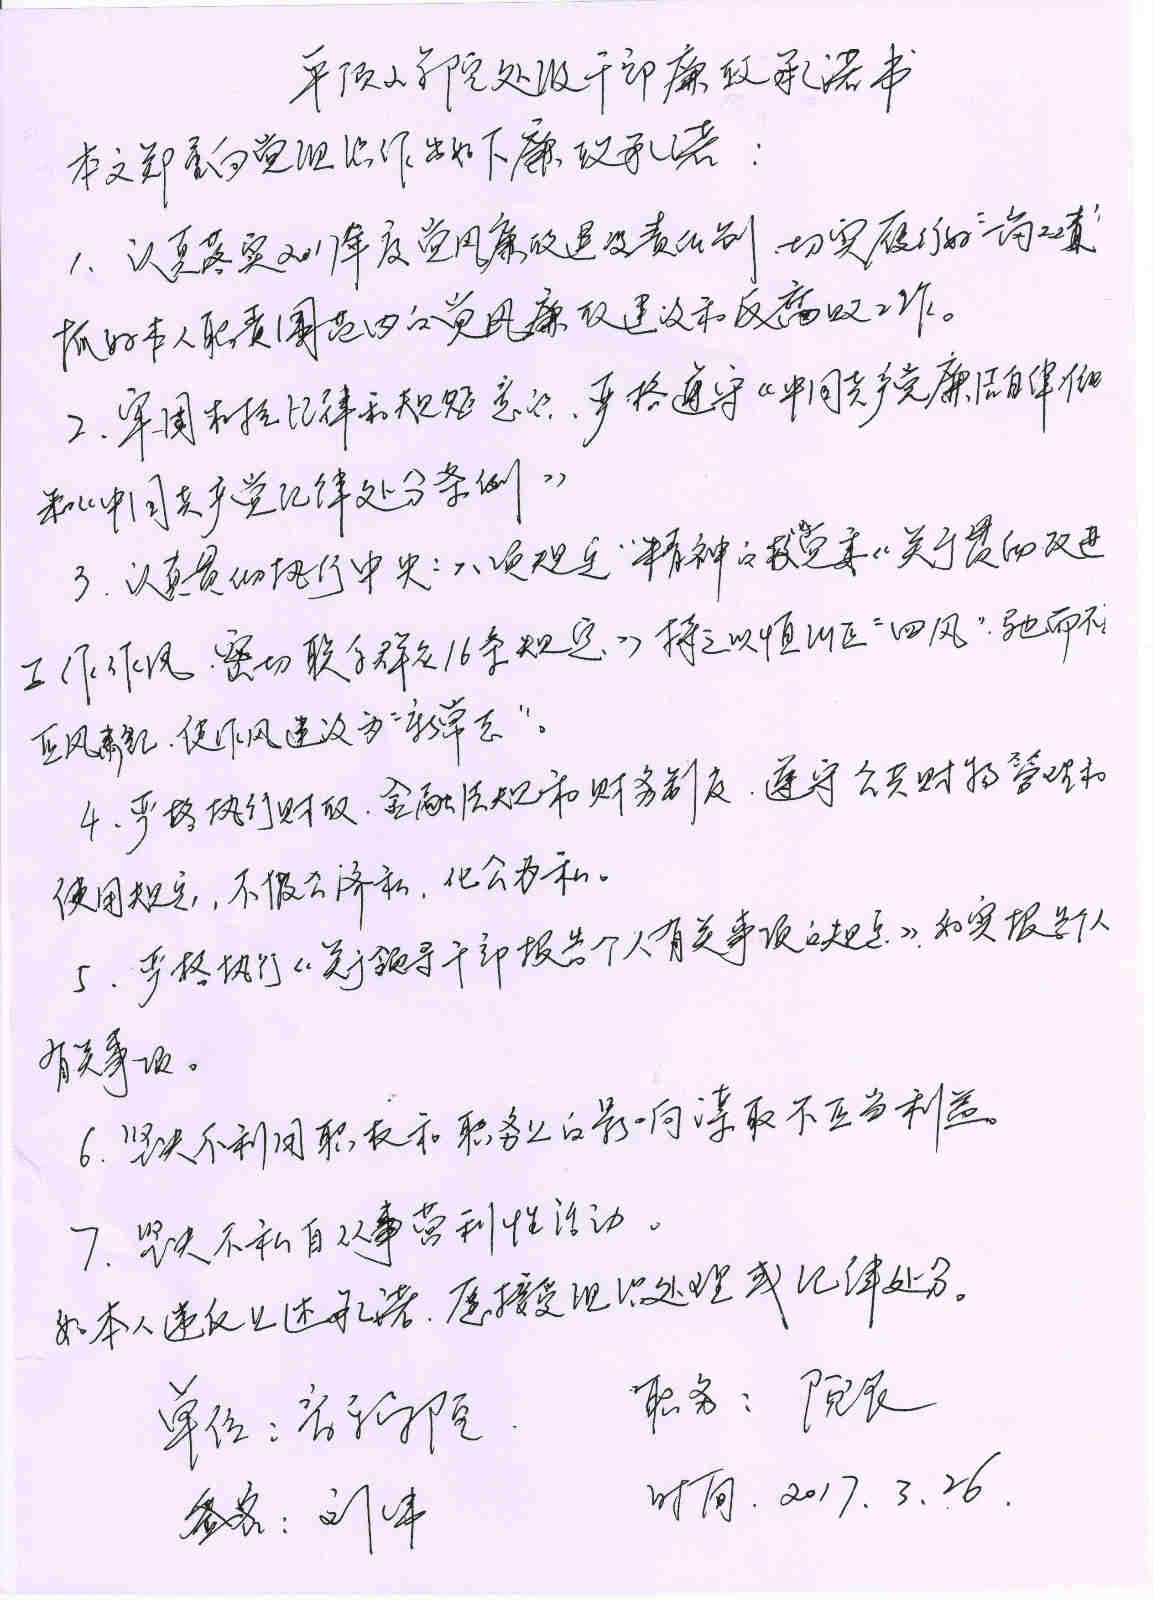 平顶山学院处级干部廉政承诺书
本文郑重向党组织作出如下廉政承诺：
1、认真落实2017年度党风廉政建设责任制，切实履行好“一岗双责”
抓好本人职责范围内的党风廉政建设和反腐败工作。
2、牢固树立纪律和规矩意识、严格遵守《中国共产党廉洁自律准则
和《中国共产党纪律处分条例》
3、认真贯彻执行中央“八项规定”精神和校党委《关于贯彻改进
工作作风、密切联系群众16条规定》持之以恒纠正“四风”，驰而不息
正风肃纪，使作风建设为“新常态”。
4、严格执行财政、金融法规和财务制度、遵守公共财物管理和
使用规定，不假公济私，化公为私。
5、严格执行《关于领导干部报告个人有关事项的规定》，如实报告个人
有关事项。
6、坚决不利用职权和职务上的影响谋取不正当利益。
7、坚决不私自从事营利性活动。
如本人违反上述承诺，愿接受组织处理或纪律处分。
单位：音乐学院
职务：院长
签名：刘伟
时间：2017.3.26.